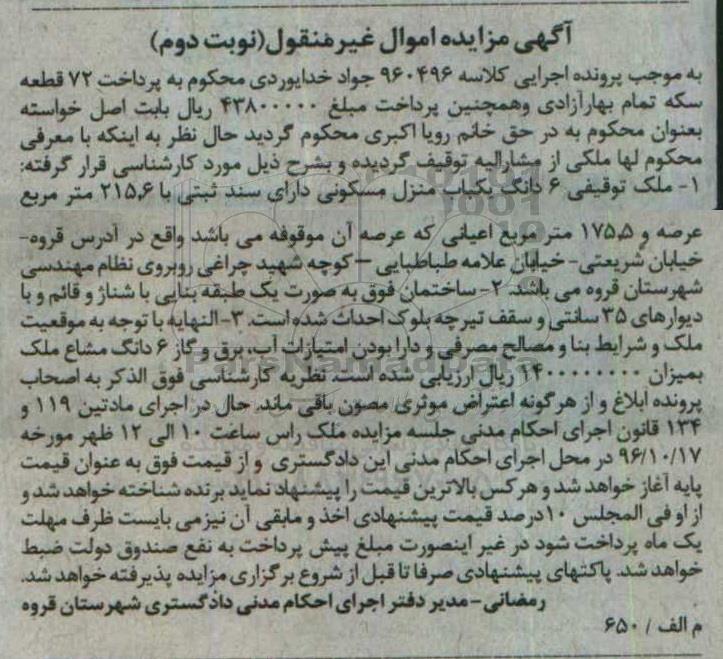 آگهی مزایده اموال غیرمنقول(نوبت دوم)
به موجب پرونده اجرایی کلاسه ۹۶۰۴۹۶ جواد خدایوردی محکوم به پرداخت ۷۲ قطعه
سکه تمام بهارآزادی وهمچنین پرداخت مبلغ ۴۳۸۰۰۰۰۰ ریال بابت اصل خواسته
بعنوان محکوم به در حق خانم رویا اکبری محکوم گردید حال نظر به اینکه با معرفی
محکوم لها ملکی از مشارالیه توقیف گردیده و بشرح ذیل مورد کارشناسی قرار گرفته:
۱- ملک توقیفی ۶ دانگ یکباب منزل مسکونی دارای سند ثبتی با ۲۱۵,۶ متر مربع
عرصه و ۱۷۵,۵ متر مربع اعیانی که عرصه آن موقوفه می باشد واقع در آدرس قروه-
خیابان شریعتی- خیابان علامه طباطبایی –کوچه شهید چراغی روبروی نظام مهندسی
شهرستان قروه می باشد. ۲- ساختمان فوق به صورت یک طبقه بنایی با شناژ و قائم و با
دیوارهای ۳۵ سانتی و سقف تیرچه بلوک احداث شده است. ۳-النهایه با توجه به موقعیت
ملک و شرایط بنا و مصالح مصرفی و دارا بودن امتیازات آب، برق و گاز ۶ دانگ مشاع ملک
بمیزان ۱۴۰۰۰۰۰۰۰۰ ریال ارزیابی شده است. نظریه کارشناسی فوق الذکر به اصحاب
پرونده ابلاغ و از هرگونه اعتراض موثری مصون باقی ماند. حال در اجرای مادتین ۱۱۹ و
۱۳۴ قانون اجرای احکام مدنی جلسه مزایده ملک راس ساعت ۱۰ الی ۱۲ ظهر مورخه
۹۶/۱۰/۱۷ در محل اجرای احکام مدنی این دادگستری و از قیمت فوق به عنوان قیمت
پایه آغاز خواهد شد و هرکس بالاترین قیمت را پیشنهاد نماید برنده شناخته خواهد شد و
از او فی المجلس ۱۰درصد قیمت پیشنهادی اخذ و مابقی آن نیز می بایست ظرف مهلت
یک ماه پرداخت شود در غیر اینصورت مبلغ پیش پرداخت به نفع صندوق دولت ضبط
خواهد شد. پاکتهای پیشنهادی صرفا تا قبل از شروع برگزاری مزایده پذیرفته خواهد شد.
رمضانی- مدیر دفتر اجرای احکام مدنی دادگستری شهرستان قروه
م الف / ۶۵۰
ParsNamadData